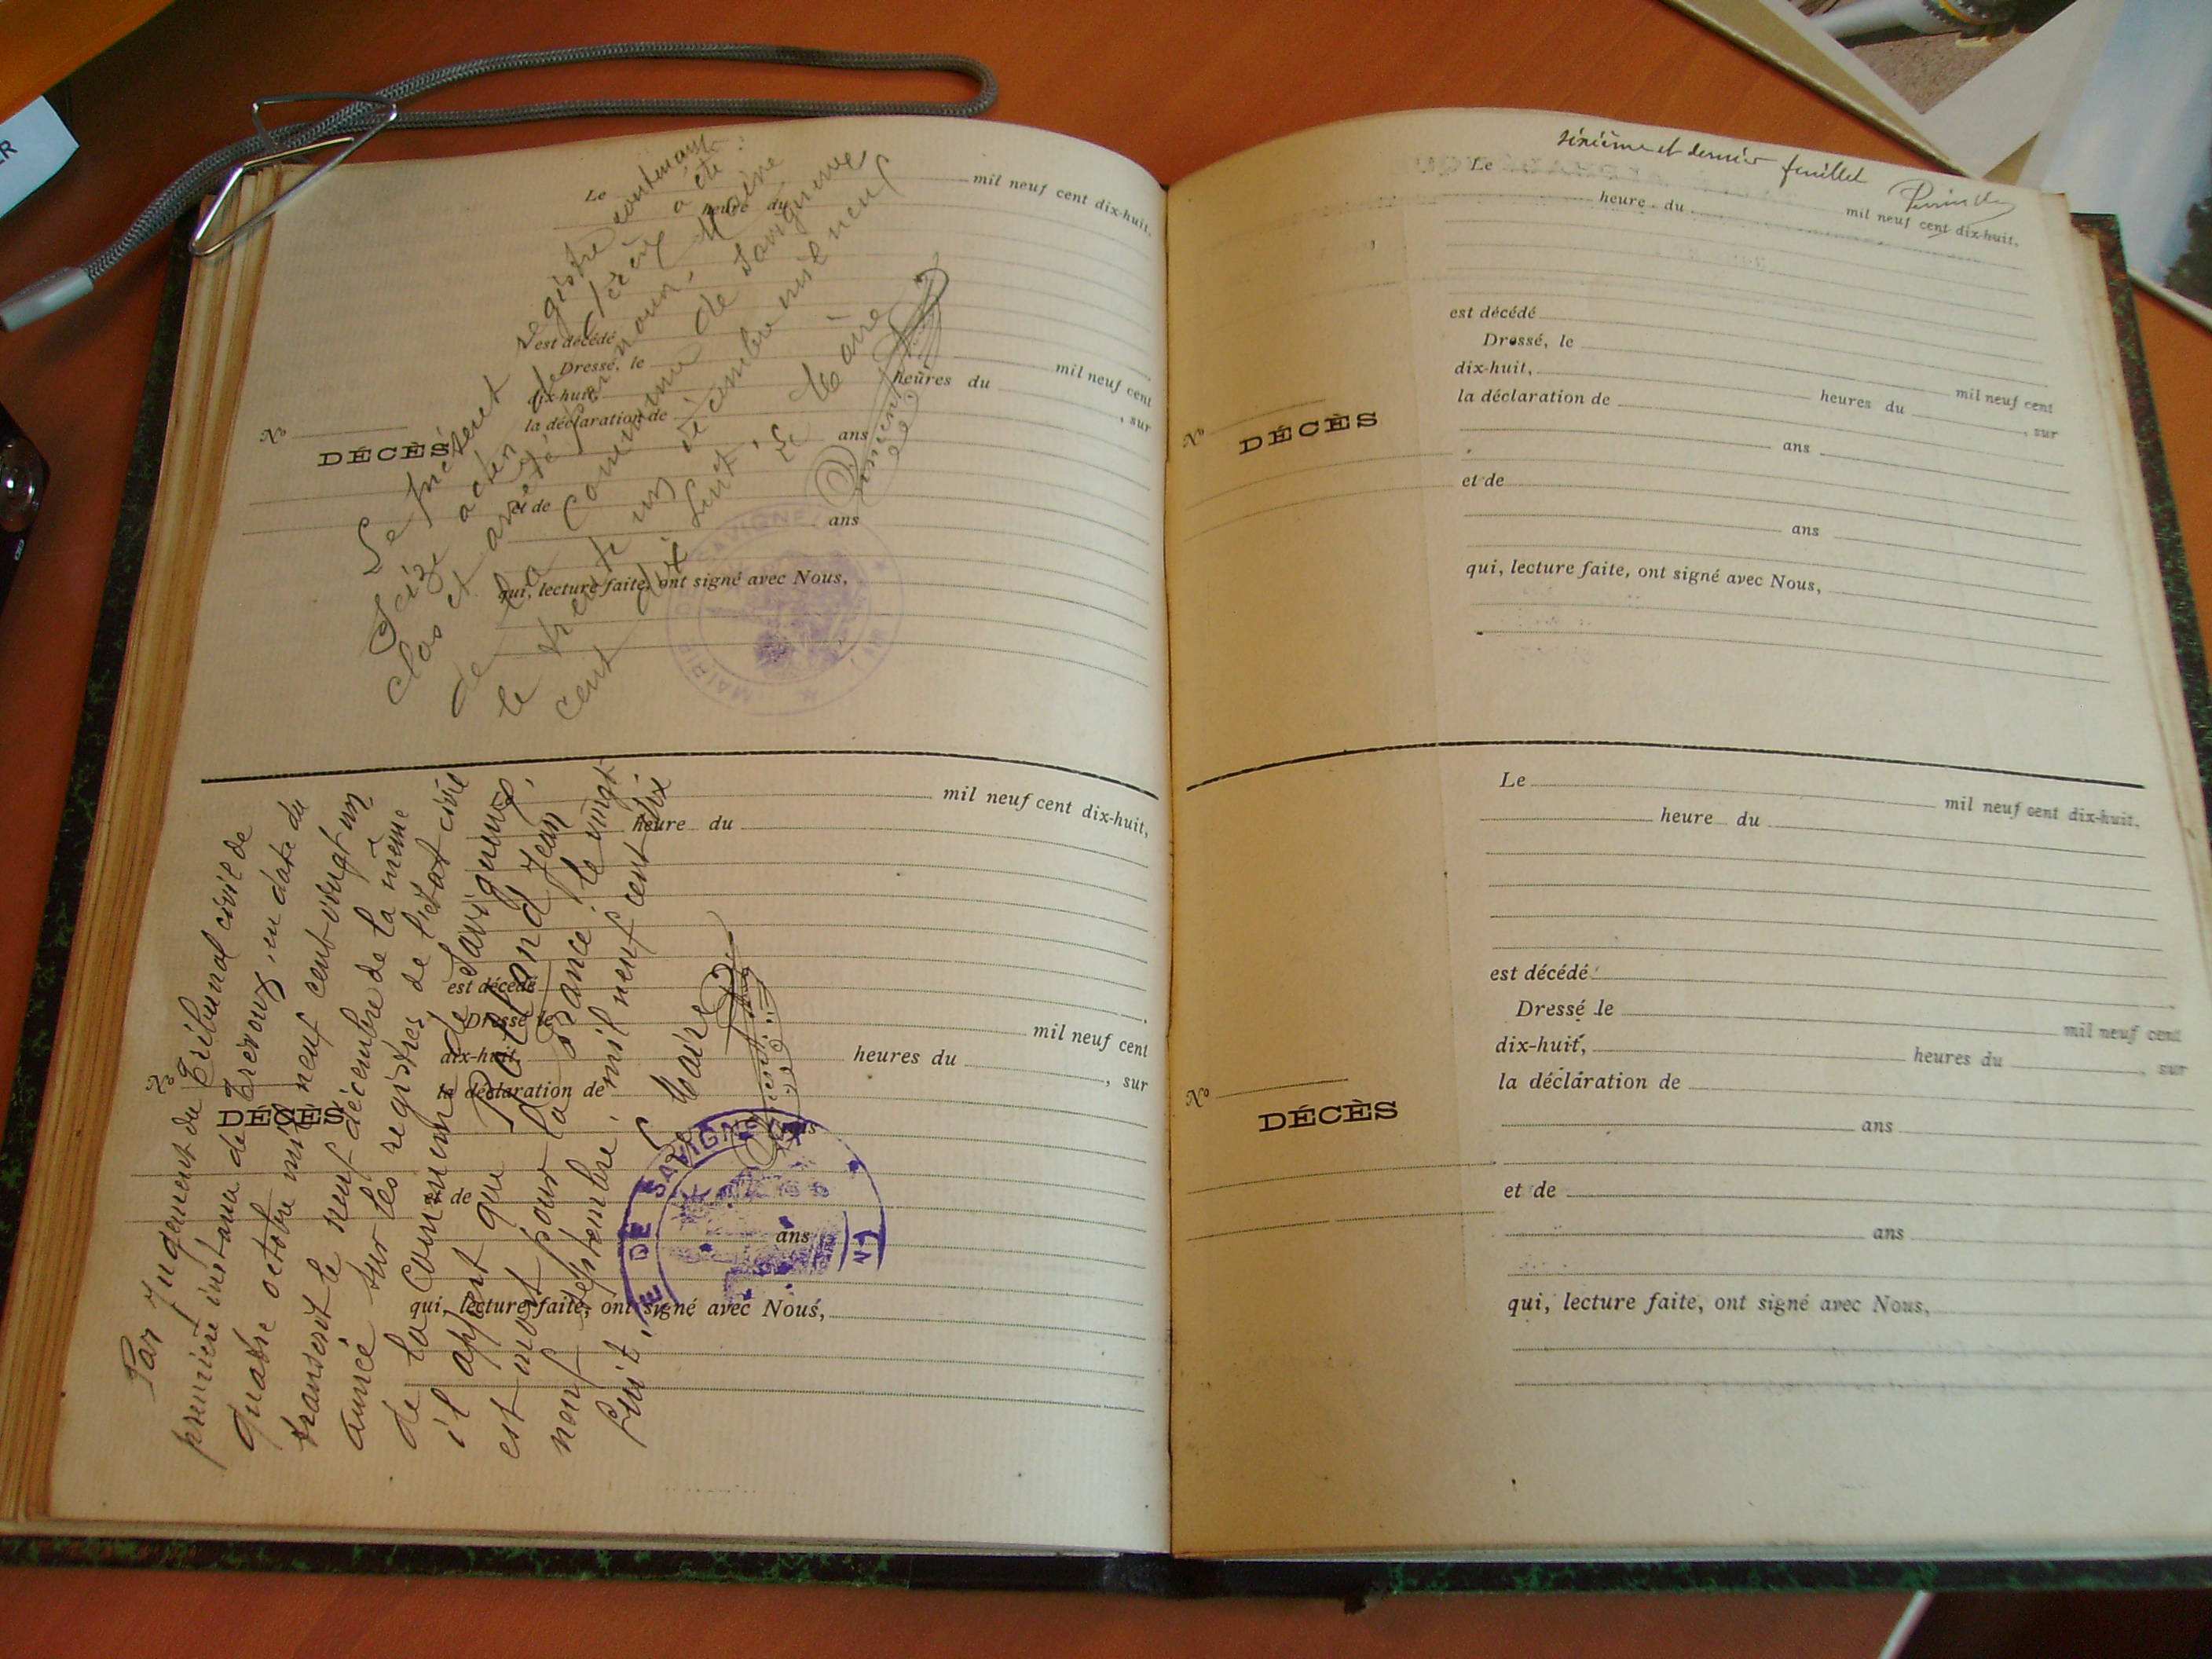 Le
mil neuf cent dix-huit,
heure du
est décédé
Dressé, le
mil neuf cent
dix-huit,
heures du
, sur
la déclaration de
ans
No
DÉCÈS
et de
ans
qui, lecture faite, ont signé avec Nous,
Le présent registre contenant
seize actes de décès a été
clos et arrêté par nous, Maire
de la commune de Savigneux
le trente un décembre mil neuf
cent dix huit.
Le Maire
MAIRIE DE SAVIGNEUX (AIN)
mil neuf cent dix-huit,
heure du
est décédé
Dressé le
mil neuf cent
dix-huit,
heures du
, sur
la déclaration de
ans
No
DÉCÈS
et de
ans
qui, lecture faite, ont signé avec Nous,
Par Jugement du Tribunal civil de
première instance de Trévoux, en date du
quatre octobre mil neuf cent vingt un
transcrit le neuf décembre de la même
année sur les registres de l'état civil
de la Commune de Savigneux,
il appert que Jean
est mort pour la France le vingt
neuf septembre mil neuf cent dix
huit.
Le Maire
DE SAVIGNEUX
sixième et dernier feuillet
Le
heure du
mil neuf cent dix-huit,
est décédé
Dressé, le
mil neuf cent
dix-huit,
heures du
, sur
la déclaration de
ans
No
DÉCÈS
et de
ans
qui, lecture faite, ont signé avec Nous,
Le
mil neuf cent dix-huit,
heure du
est décédé
Dressé le
mil neuf cent
dix-huit,
heures du
, sur
la déclaration de
ans
No
DÉCÈS
et de
ans
qui, lecture faite, ont signé avec Nous,
ER